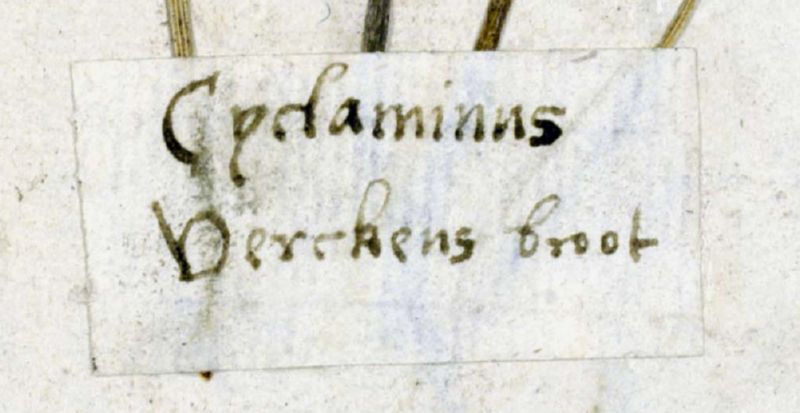 Cyclaminus
Verckens broot